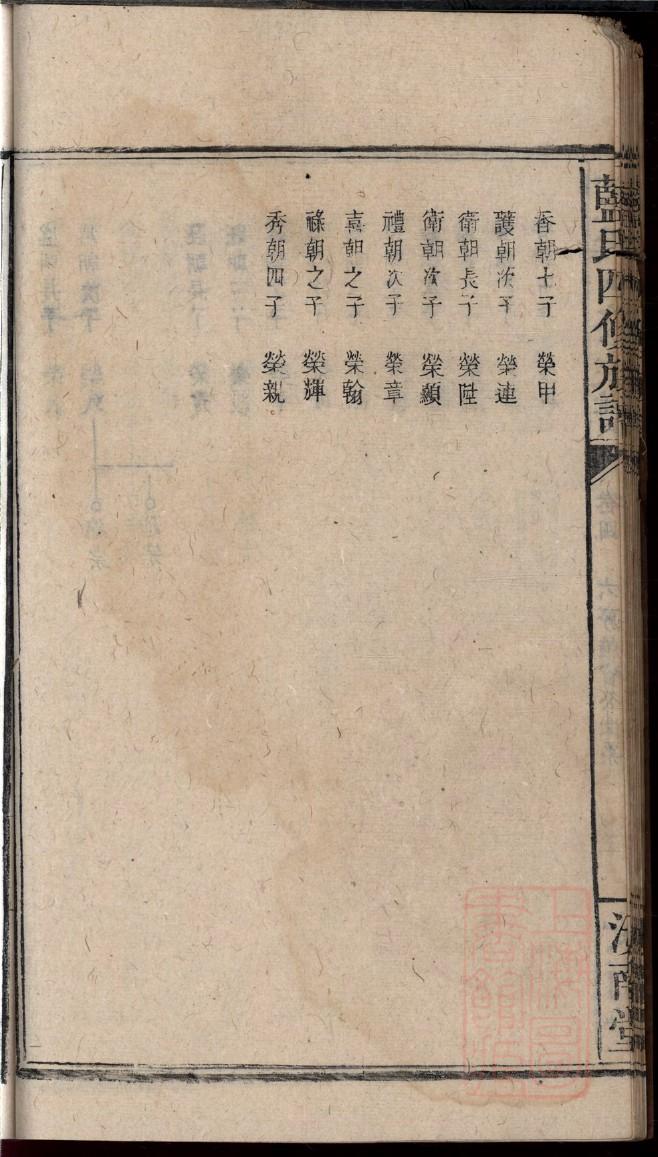 藍氏四修族譜
汝南堂
香朝七子 榮甲
護朝次子 榮連
衛朝長子 榮陞
衛朝次子 榮顯
禮朝次子 榮章
喜朝之子 榮翰
祿朝之子 榮輝
秀朝四子 榮親